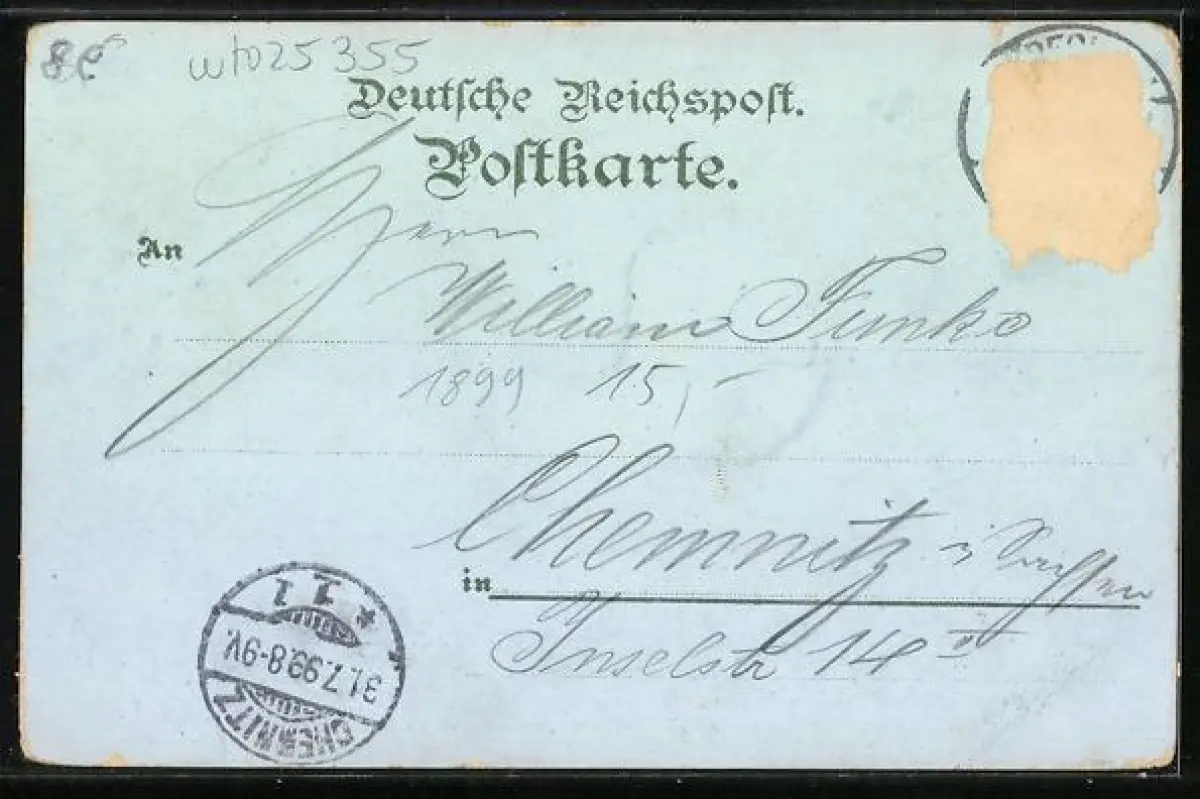 wto25355
Deutsche Reichspost.
Postkarte.
An
Herrn
William Funke
1899 15,-
Chemnitz i Sachsen
in
Inselstr 14 II
* 1 1
31.7.99.8-9V.
CHEMNITZ